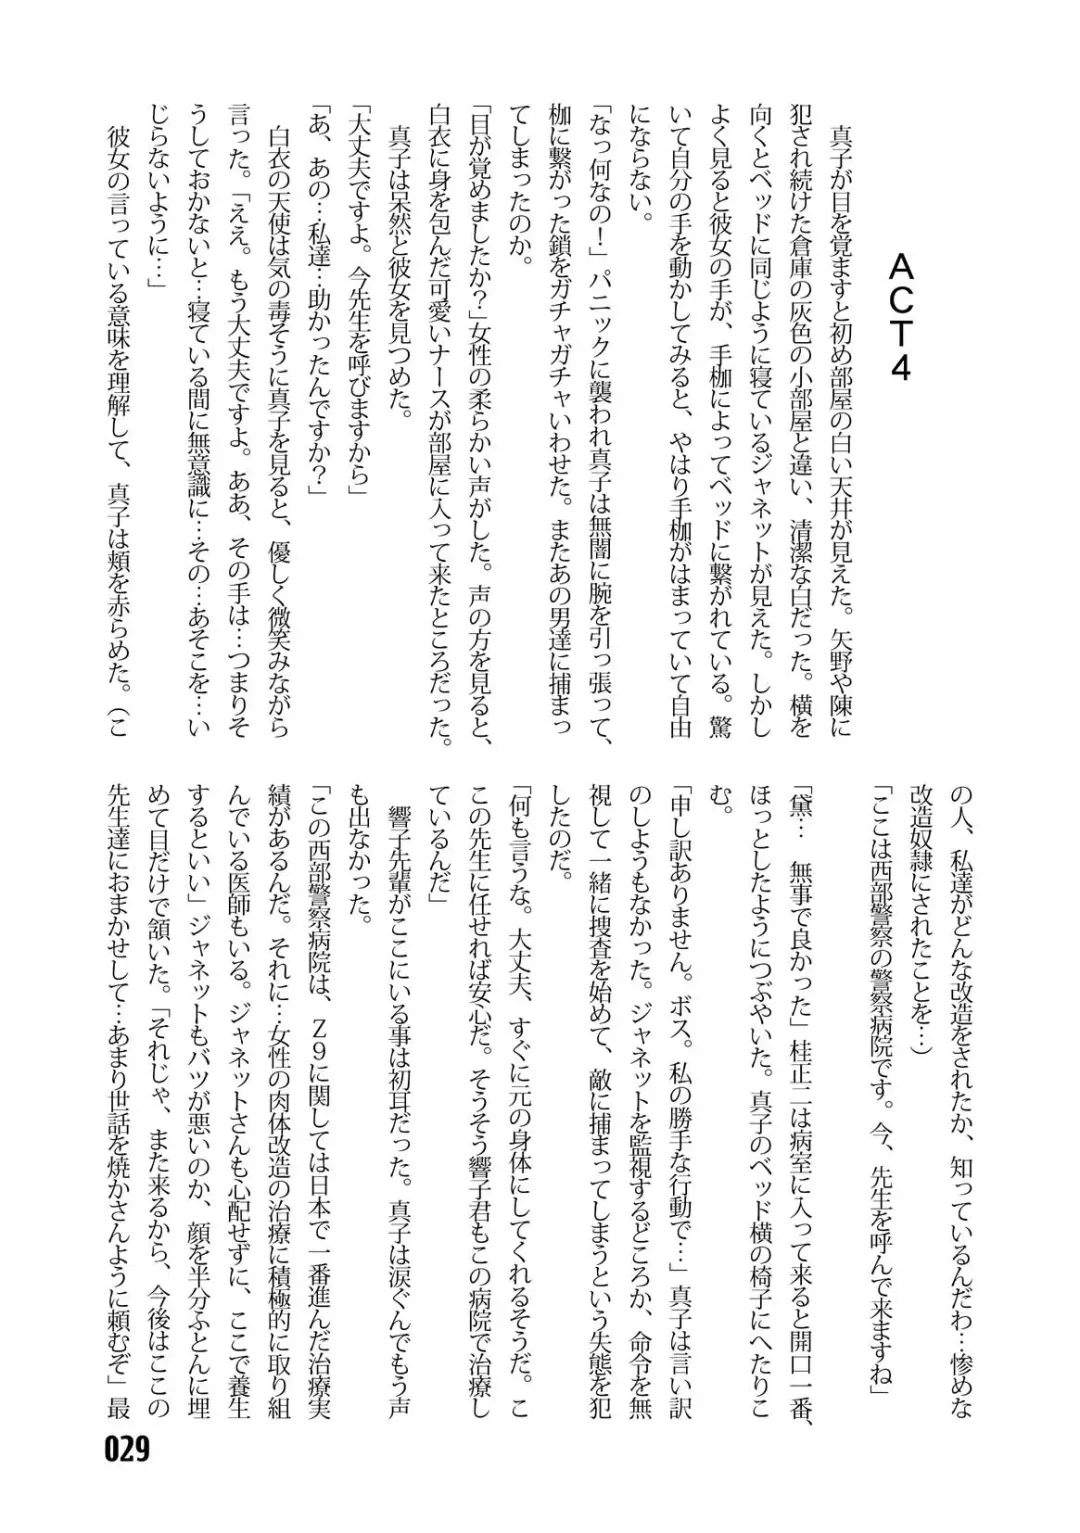 ACT4
　真子が目を覚ますと初め部屋の白い天井が見えた。矢野や陳に
犯され続けた倉庫の灰色の小部屋と違い、清潔な白だった。横を
向くとベッドに同じように寝ているジャネットが見えた。しかし
よく見ると彼女の手が、手枷によってベッドに繋がれている。驚
いて自分の手を動かしてみると、やはり手枷がはまっていて自由
にならない。
「なっ何なの！」パニックに襲われ真子は無闇に腕を引っ張って、
枷に繋がった鎖をガチャガチャいわせた。またあの男達に捕まっ
てしまったのか。
「目が覚めましたか？」女性の柔らかい声がした。声の方を見ると、
白衣に身を包んだ可愛いナースが部屋に入って来たところだった。
　真子は呆然と彼女を見つめた。
「大丈夫ですよ。今先生を呼びますから」
「あ、あの…私達…助かったんですか？」
　白衣の天使は気の毒そうに真子を見ると、優しく微笑みながら
言った。「ええ。もう大丈夫ですよ。ああ、その手は…つまりそ
うしておかないと…寝ている間に無意識に…その…あそこを…い
じらないように…」
　彼女の言っている意味を理解して、真子は頬を赤らめた。（こ
の人、私達がどんな改造をされたか、知っているんだわ…惨めな
改造奴隷にされたことを…）
「ここは西部警察の警察病院です。今、先生を呼んで来ますね」
「黛…　無事で良かった」桂正二は病室に入って来ると開口一番、
ほっとしたようにつぶやいた。真子のベッド横の椅子にへたりこ
む。
「申し訳ありません。ボス。私の勝手な行動で…」真子は言い訳
のしようもなかった。ジャネットを監視するどころか、命令を無
視して一緒に捜査を始めて、敵に捕まってしまうという失態を犯
したのだ。
「何も言うな。大丈夫、すぐに元の身体にしてくれるそうだ。こ
この先生に任せれば安心だ。そうそう響子君もこの病院で治療し
ているんだ」
　響子先輩がここにいる事は初耳だった。真子は涙ぐんでもう声
も出なかった。
「この西部警察病院は、Ｚ９に関しては日本で一番進んだ治療実
績があるんだ。それに…女性の肉体改造の治療に積極的に取り組
んでいる医師もいる。ジャネットさんも心配せずに、ここで養生
するといい」ジャネットもバツが悪いのか、顔を半分ふとんに埋
めて目だけで頷いた。「それじゃ、また来るから、今後はここの
先生達におまかせして…あまり世話を焼かさんように頼むぞ」最
029